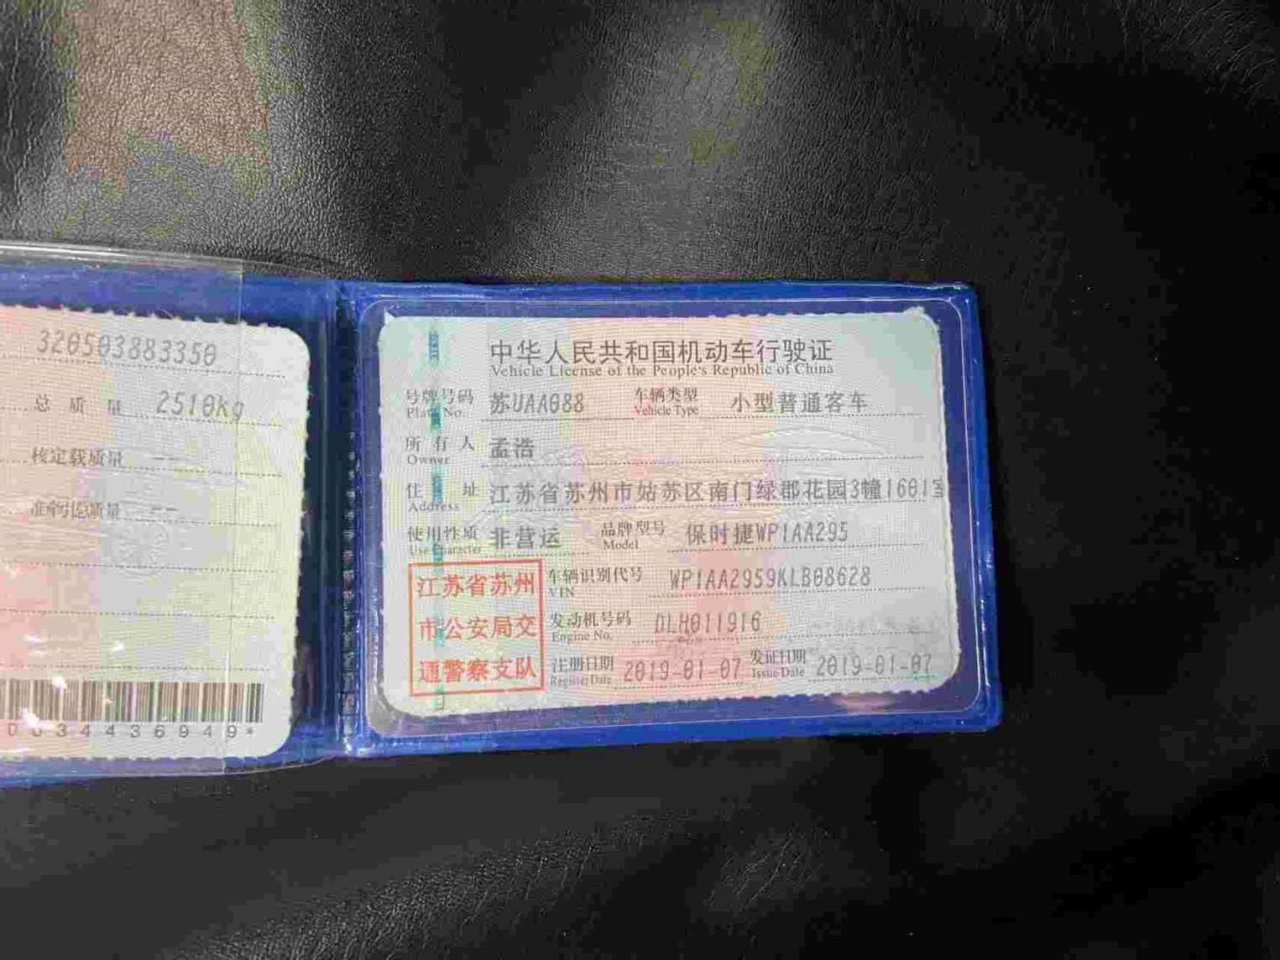 320503883350
总质量 2510kg
核定载质量 --
准牵引总质量 --
0034436949*
中华人民共和国机动车行驶证
Vehicle License of the People's Republic of China
号牌号码 苏UAA088 车辆类型 小型普通客车
Plate No. Vehicle Type
所有人 孟浩
Owner
住址 江苏省苏州市姑苏区南门绿郡花园3幢1601室
Address
使用性质 非营运 品牌型号 保时捷WP1AA295
Use Character Model
江苏省苏州
市公安局交
通警察支队
车辆识别代号 WP1AA2959KLB08628
VIN
发动机号码 DLH011916
Engine No.
注册日期 2019-01-07 发证日期 2019-01-07
Register Date Issue Date